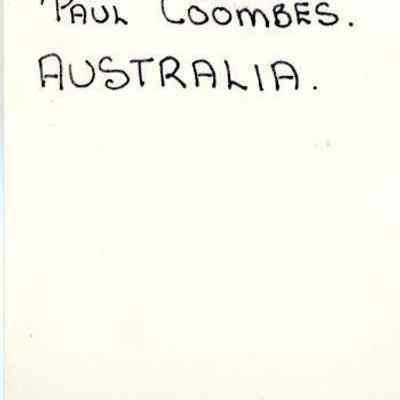 PAUL COOMBES.
AUSTRALIA.